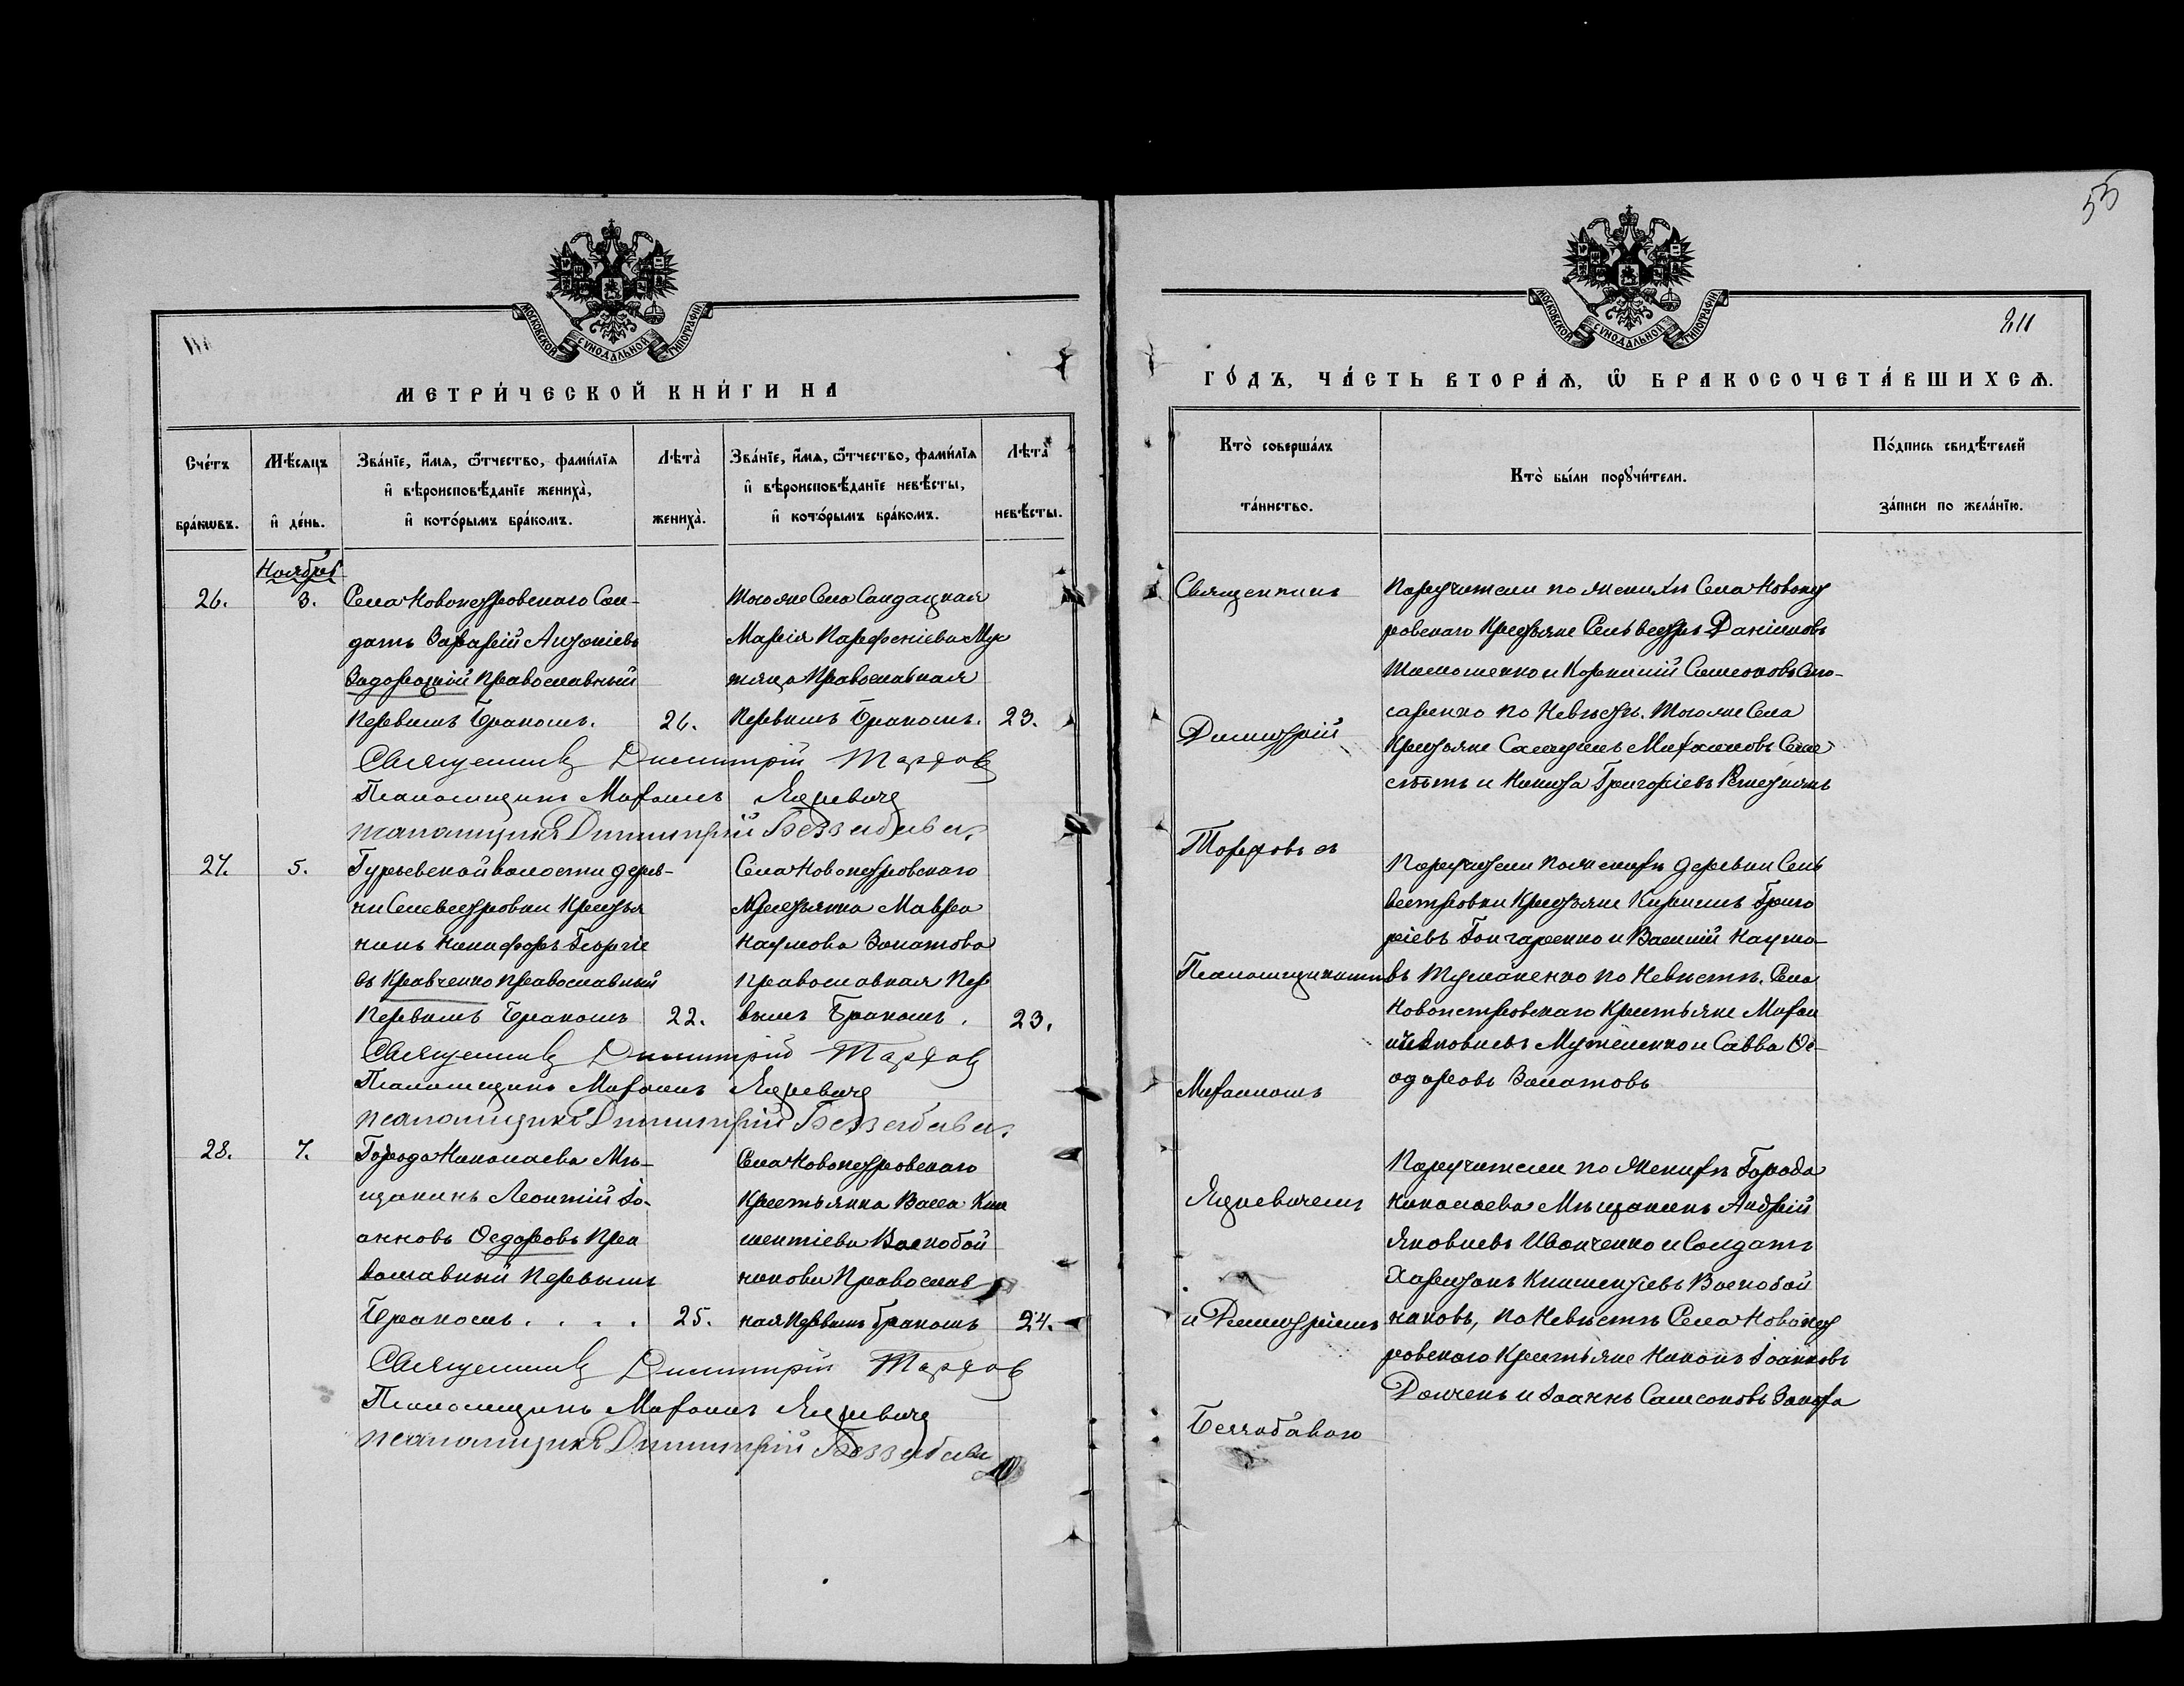 55
МОСКОВСКОЙ СѴНОДАЛЬНОЙ ТИПОГРАФІИ
МЕТРИ́ЧЕСКОЙ КНИ́ГИ НА
Сче́тъ бра́кѡвъ.
Мѣ́сѧцъ и҆ де́нь.
Зва́нїе, и҆́мѧ, ѻ҆́тчество, фами́лїѧ
и҆ вѣроисповѣ́данїе жениха̀,
и҆ кото́рымъ бра́комъ.
Лѣта̀ жениха̀.
Зва́нїе, и҆́мѧ, ѻ҆́тчество, фами́лїѧ
и҆ вѣроисповѣ́данїе невѣ́сты,
и҆ кото́рымъ бра́комъ.
Лѣта̀ невѣ́сты.
Ноябрь
26.
3.
Села Новопетровскаго Сол-
датъ Захарій Антоніевъ
Задорожній Православный
Первымъ Бракомъ.
26.
Того же Села Солдацкая
Марія Парфеніева Му
тяца Православная
Первымъ Бракомъ.
23.
Священникъ Димитрій Торхов
Псаломщикъ Михаилъ Яцкевичъ
псаломщикъ Димитрій Беззабава
27.
5.
Гурьевской волости дерев-
ни Сильвестровки Крестья
нинъ Никифоръ Георгіе
въ Кравченко Православный
Первымъ Бракомъ
22.
Села Новопетровскаго
Крестьянка Мавра
Наумова Золотова
Православная Пер
вымъ Бракомъ.
23.
Священникъ Димитрій Торхов
Псаломщикъ Михаилъ Яцкевичъ
псаломщикъ Димитрій Беззабава
28.
7.
Города Николаева Мѣ-
щанинъ Леонтій Іо-
анновъ Ѳедоровъ Пра
вославный Первымъ
Бракомъ. . . .
25.
Села Новопетровскаго
Крестьянка Васса Кли
ментіева Воскобой
никова Православ
ная Первымъ бракомъ
24.
Священникъ Димитрій Торхов
Псаломщикъ Михаилъ Яцкевичъ
псаломщикъ Димитрій Беззабава
МОСКОВСКОЙ СѴНОДАЛЬНОЙ ТИПОГРАФІИ
211
ГО́ДЪ, ЧА́СТЬ ВТОРА́Ѧ, Ѡ҆ БРАКОСОЧЕТА́ВШИХСѦ.
Кто̀ соверша́лъ
та́инство.
Кто̀ бы́ли порꙋчи́тели.
По́дпись свидѣ́телей
за́писи по жела́нїю.
Священникъ
Димитрій
Торховъ съ
Псаломщиками
Михаиломъ
Яцкевичемъ
и Димитріемъ
Беззабавою
Поручители по женихѣ Села Новопет
ровскаго Крестьяне Сельвестръ Даніиловъ
Тимошенко и Корнилій Симеоновъ Слю-
саренко по Невѣстѣ. Того же Села
Крестьяне Самуилъ Михаиловъ
и Никита Григоріевъ Решетникъ
Поручители по женихѣ деревни Силь
вестровки Крестьяне Кириллъ Григо
ріевъ Гончаренко и Василій Наумо-
въ Тумаченко по Невѣстѣ. Села
Новопетровскаго Крестьяне Михаи
лъ Яковлевъ и Савва Ѳе-
одоровъ Золотовъ
Поручители по Женихѣ Города
Николаева Мѣщанинъ Андрій
Яковлевъ Иванченко и Солдатъ
Харитонъ Климентіевъ Воскобой
никовъ, по Невѣстѣ Села Новопет
ровскаго Крестьяне Никонъ Іоанновъ
и Іоаннъ Самсоновъ